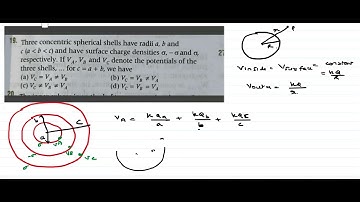 19. Three concentric spherical shells have radii a, b and
c (a < b < c) and have surface charge densities σ, – σ and σ,
respectively. If VA, VB and VC denote the potentials of the
three shells, ... for c = a + b, we have
(a) VC = VA ≠ VB (b) VC = VB ≠ VA
(c) VC ≠ VB ≠ VA (d) VC = VB = VA
P
R
V inside = V surface = constant
= kQ/R
V outu = kQ/r
b
a
c
VA
VB
VC
VA = kQa/a + kQb/b + kQc/c